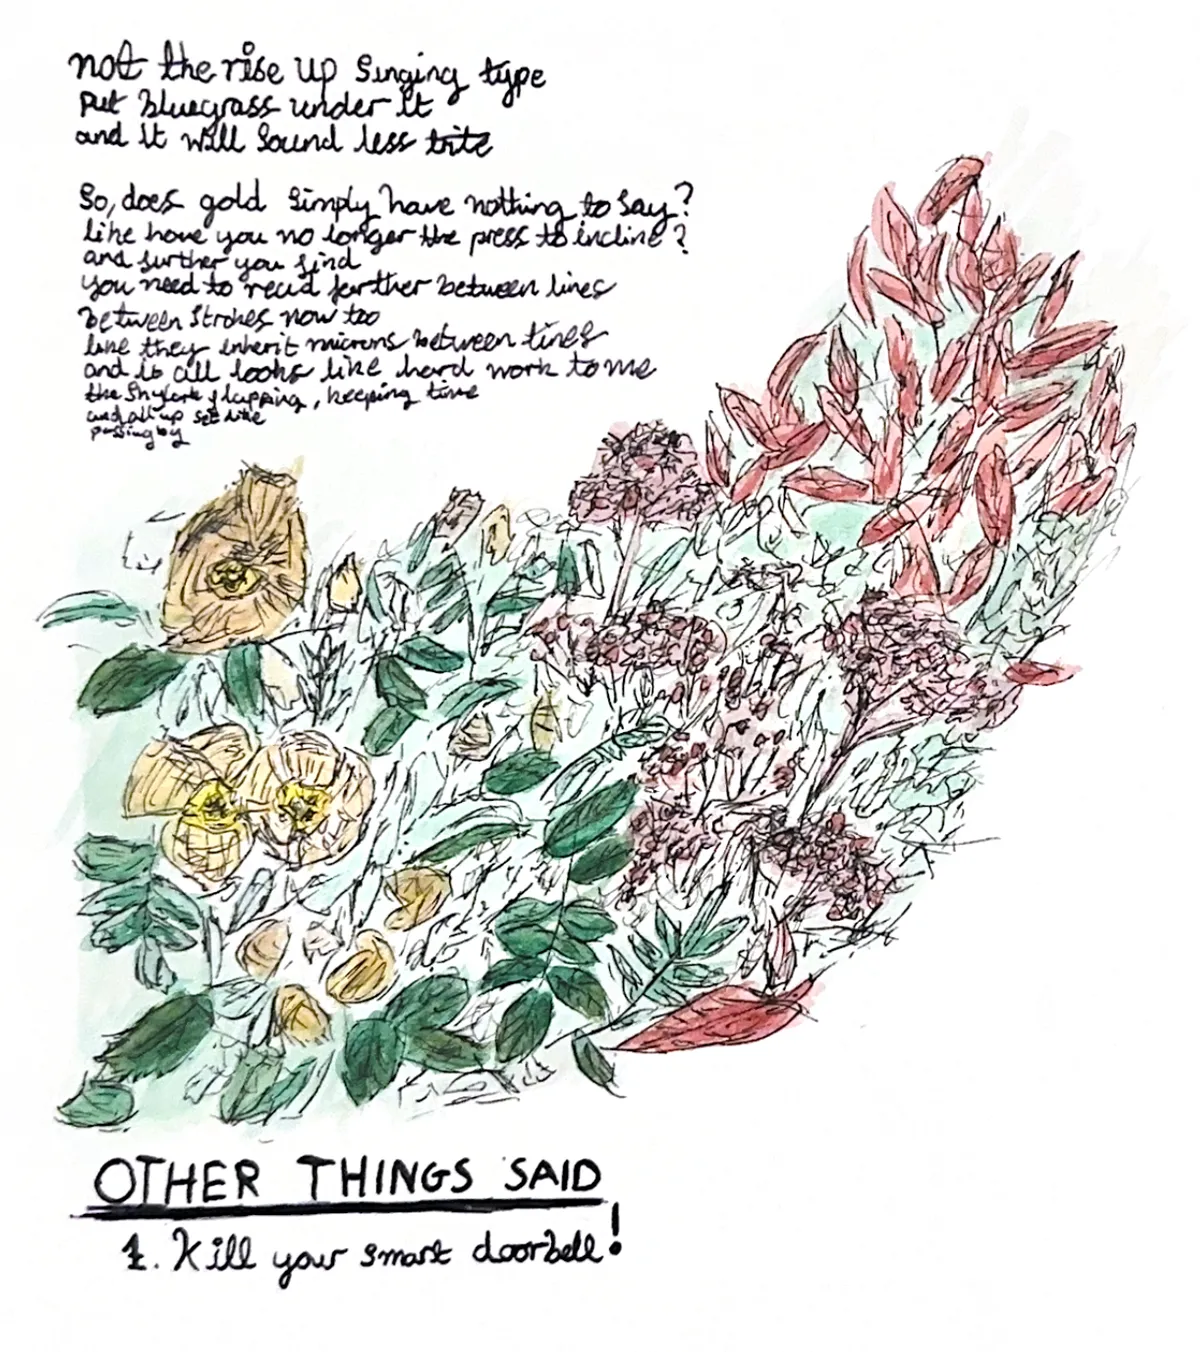 not the rise up singing type
put bluegrass under it
and it will sound less trite
So, does gold simply have nothing to say?
like have you no longer the press to incline?
and further you find
you need to read further between lines
between strokes now too
like they inherit microns between tines
and it all looks like hard work to me
the skylark flapping, keeping time
and all up set like
passing by
OTHER THINGS SAID
1. Kill your smart doorbell!